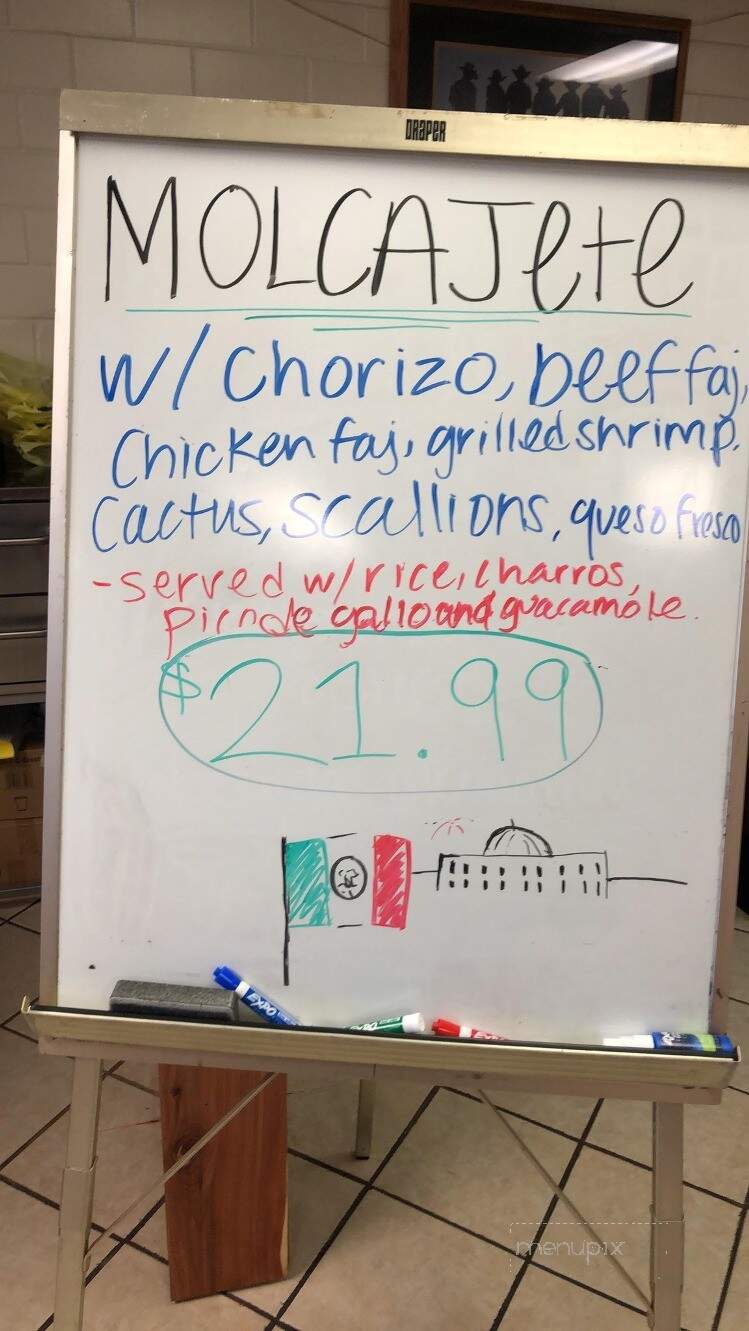 DRAPER
MOLCAJete
w/ Chorizo, beef faj,
Chicken faj, grilled shrimp,
Cactus, scallions, queso fresco
- served w/ rice, charros,
pico de gallo and guacamole.
$21.99
EXPO
EXPO
menupix